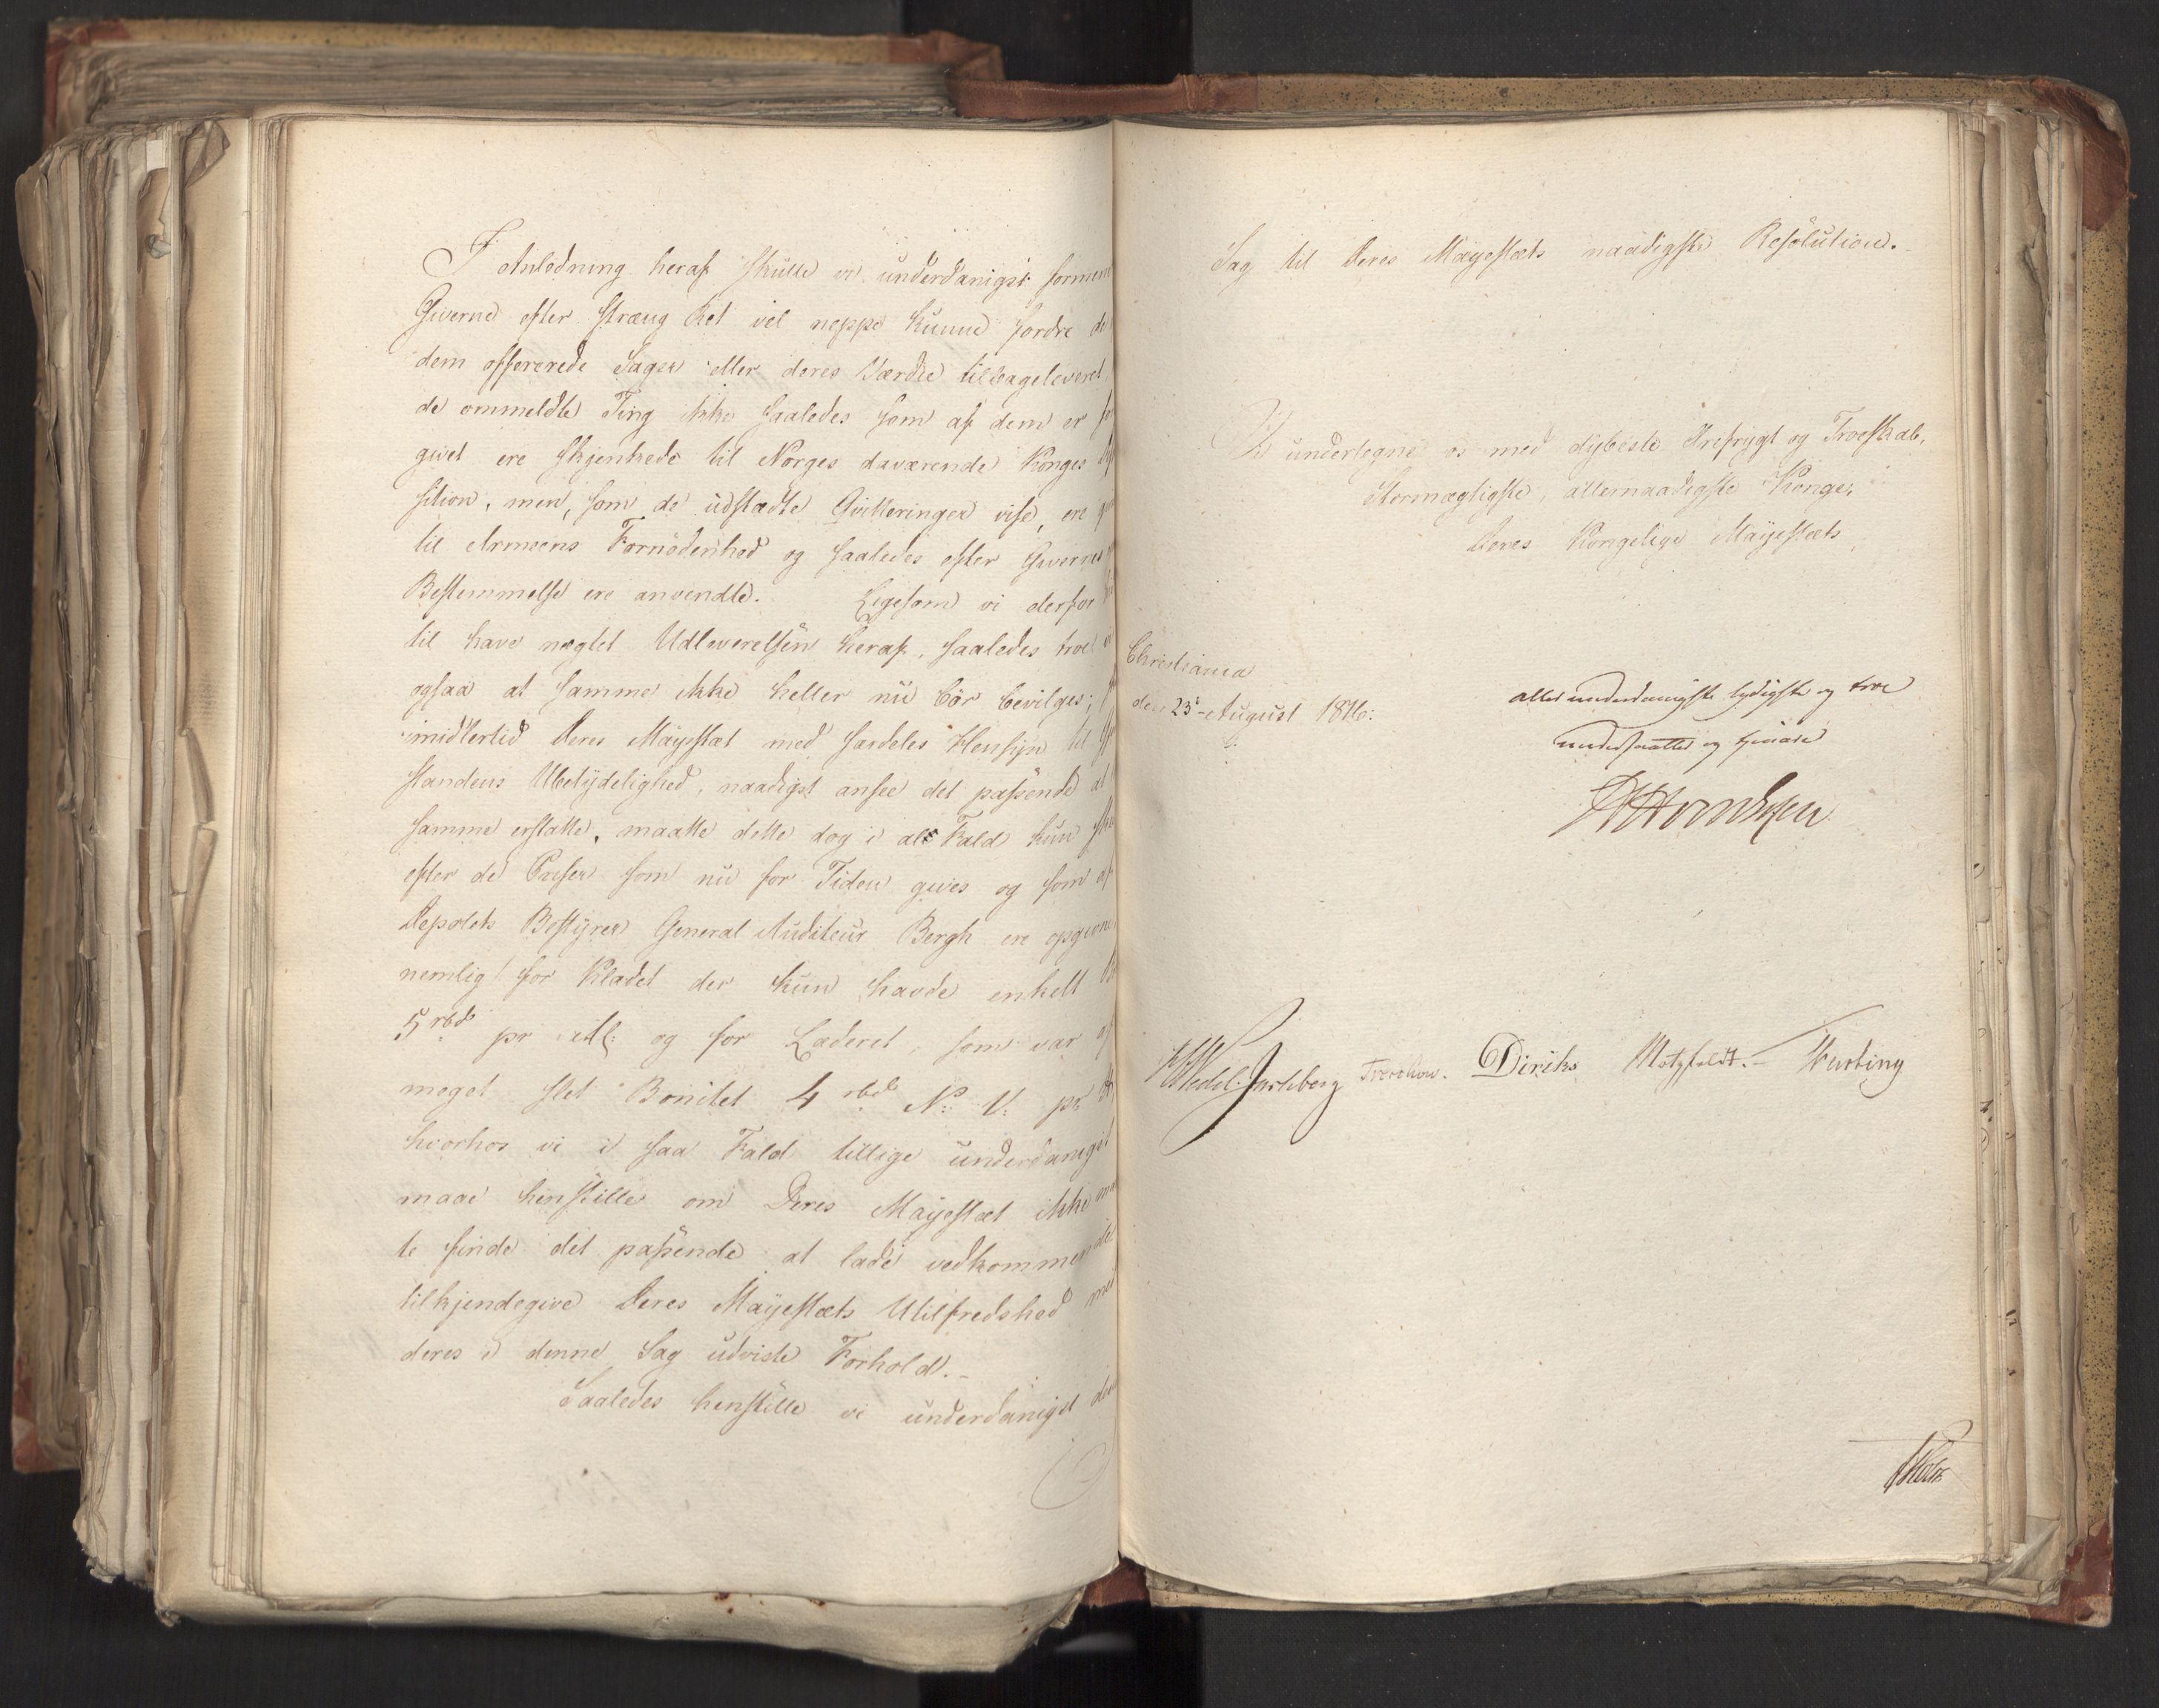 I Anledning heraf skulle vi underdanigst formene
Giverne efter stræng Ret vel neppe kunne fordre de
dem offererede Sager eller deres Værdie tilbageleveret
de ommeldte Ting ikke saaledes som af dem er
givet ere skjenkede til Norges daværende Konges
sition, men, som de udstædte Qvitteringer vise, ere
til Armeens Fornödenhed og saaledes efter Givernes
Bestemmelse ere anvendte. Ligesom vi derfor
til have nægtet Udleverelsen heraf, saaledes troe
ogsaa at samme ikke heller nu bör bevilges;
imidlertid Deres Mayestæt med særdeles Hensyn til
standens Ubetydelighed, naadigst ansee det passende at
samme erstatte, maatte dette dog i alt Fald kun
efter de Priser som nu for Tiden gives og som af
Depotets Bestyrer General Auditeur Bergh ere opgivne
nemlig for Klædet der kun havde enkelt
5 rbd pr Al: og for Læderet, som var af
meget slet Bonitet 4 rbd N: V: pr
hvorhos vi i saa Fald tillige underdanigst
maae henstille om Deres Mayestæt ikke maat
te finde det passende at lade vedkommende
tilkjendegive Deres Mayestæts Utilfredshed med
deres i denne Sag udviste Forhold.-
Saaledes henstille vi underdanigst den
Sag til Deres Mayestæts naadigste Resolution.-
Vi undertegne os med dybeste Ærefrygt og Troeskab,
Stormægtigste, allernaadigste Konge,
Deres Kongelige Mayestæts,
Christiania
den 23de August 1816:
allerunderdanigste lydigste og troe
undersaatter og tjenere
Wedel-Jarlsberg Treschow. Diriks Motzfeldt.-